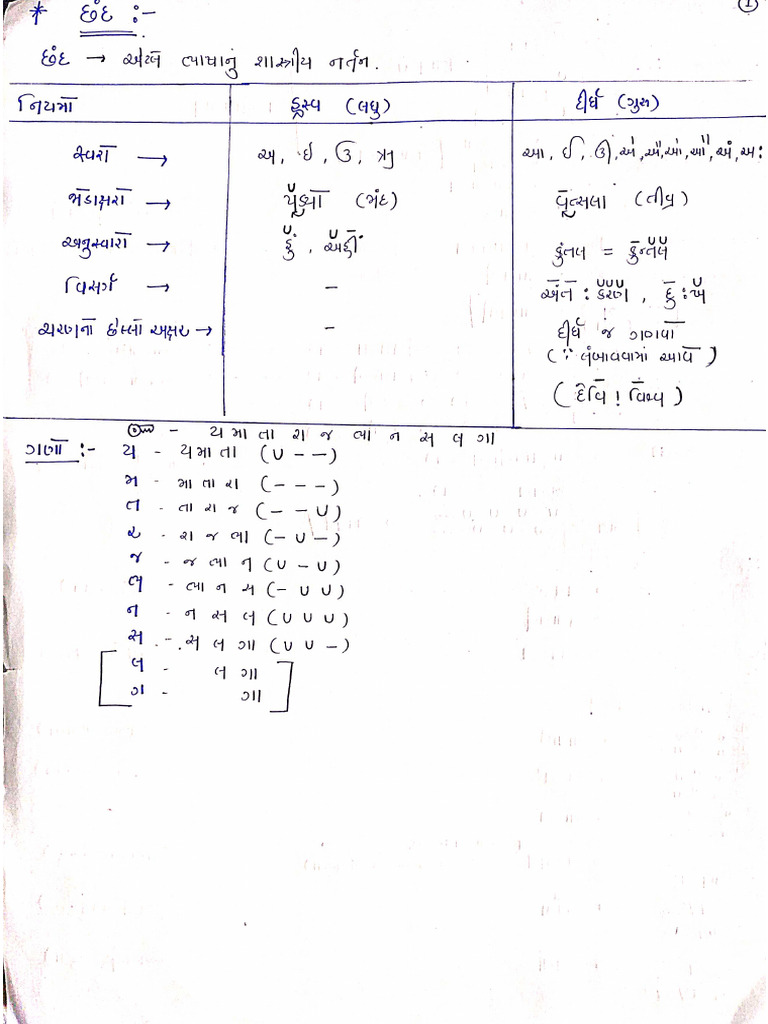 ①
* છંદ :-
છંદ → એટલે ભાષાનું શાસ્ત્રીય નર્તન.
નિયમો હ્રસ્વ (લઘુ) દીર્ઘ (ગુરુ)
સ્વરો → અ, ઇ, ઉ, ઋ આ, ઈ, ઊ, એ, ઐ, ઓ, ઔ, અં, અઃ
જોડાક્ષરો → પડ્યો (મંદ) વત્સલા (તીવ્ર)
અનુસ્વારો → હું, અહીં કુંતલ = કુન્તલ
વિસર્ગ → - અંતઃકરણ, દુઃખ
ચરણનો છેલ્લો અક્ષર → - દીર્ઘ જ ગણવો
(∵ લંબાવવામાં આવે)
(દેવિ! વિશ્વ)
- યમાતારાજભાનસલગા
ગણો :- ય - યમાતા (∪ - -)
મ - માતારા (- - -)
ત - તારાજ (- - ∪)
ર - રાજભા (- ∪ -)
જ - જભાન (∪ - ∪)
ભ - ભાનસ (- ∪ ∪)
ન - નસલ (∪ ∪ ∪)
સ - સલગા (∪ ∪ -)
લ - લગા
ગ - ગા